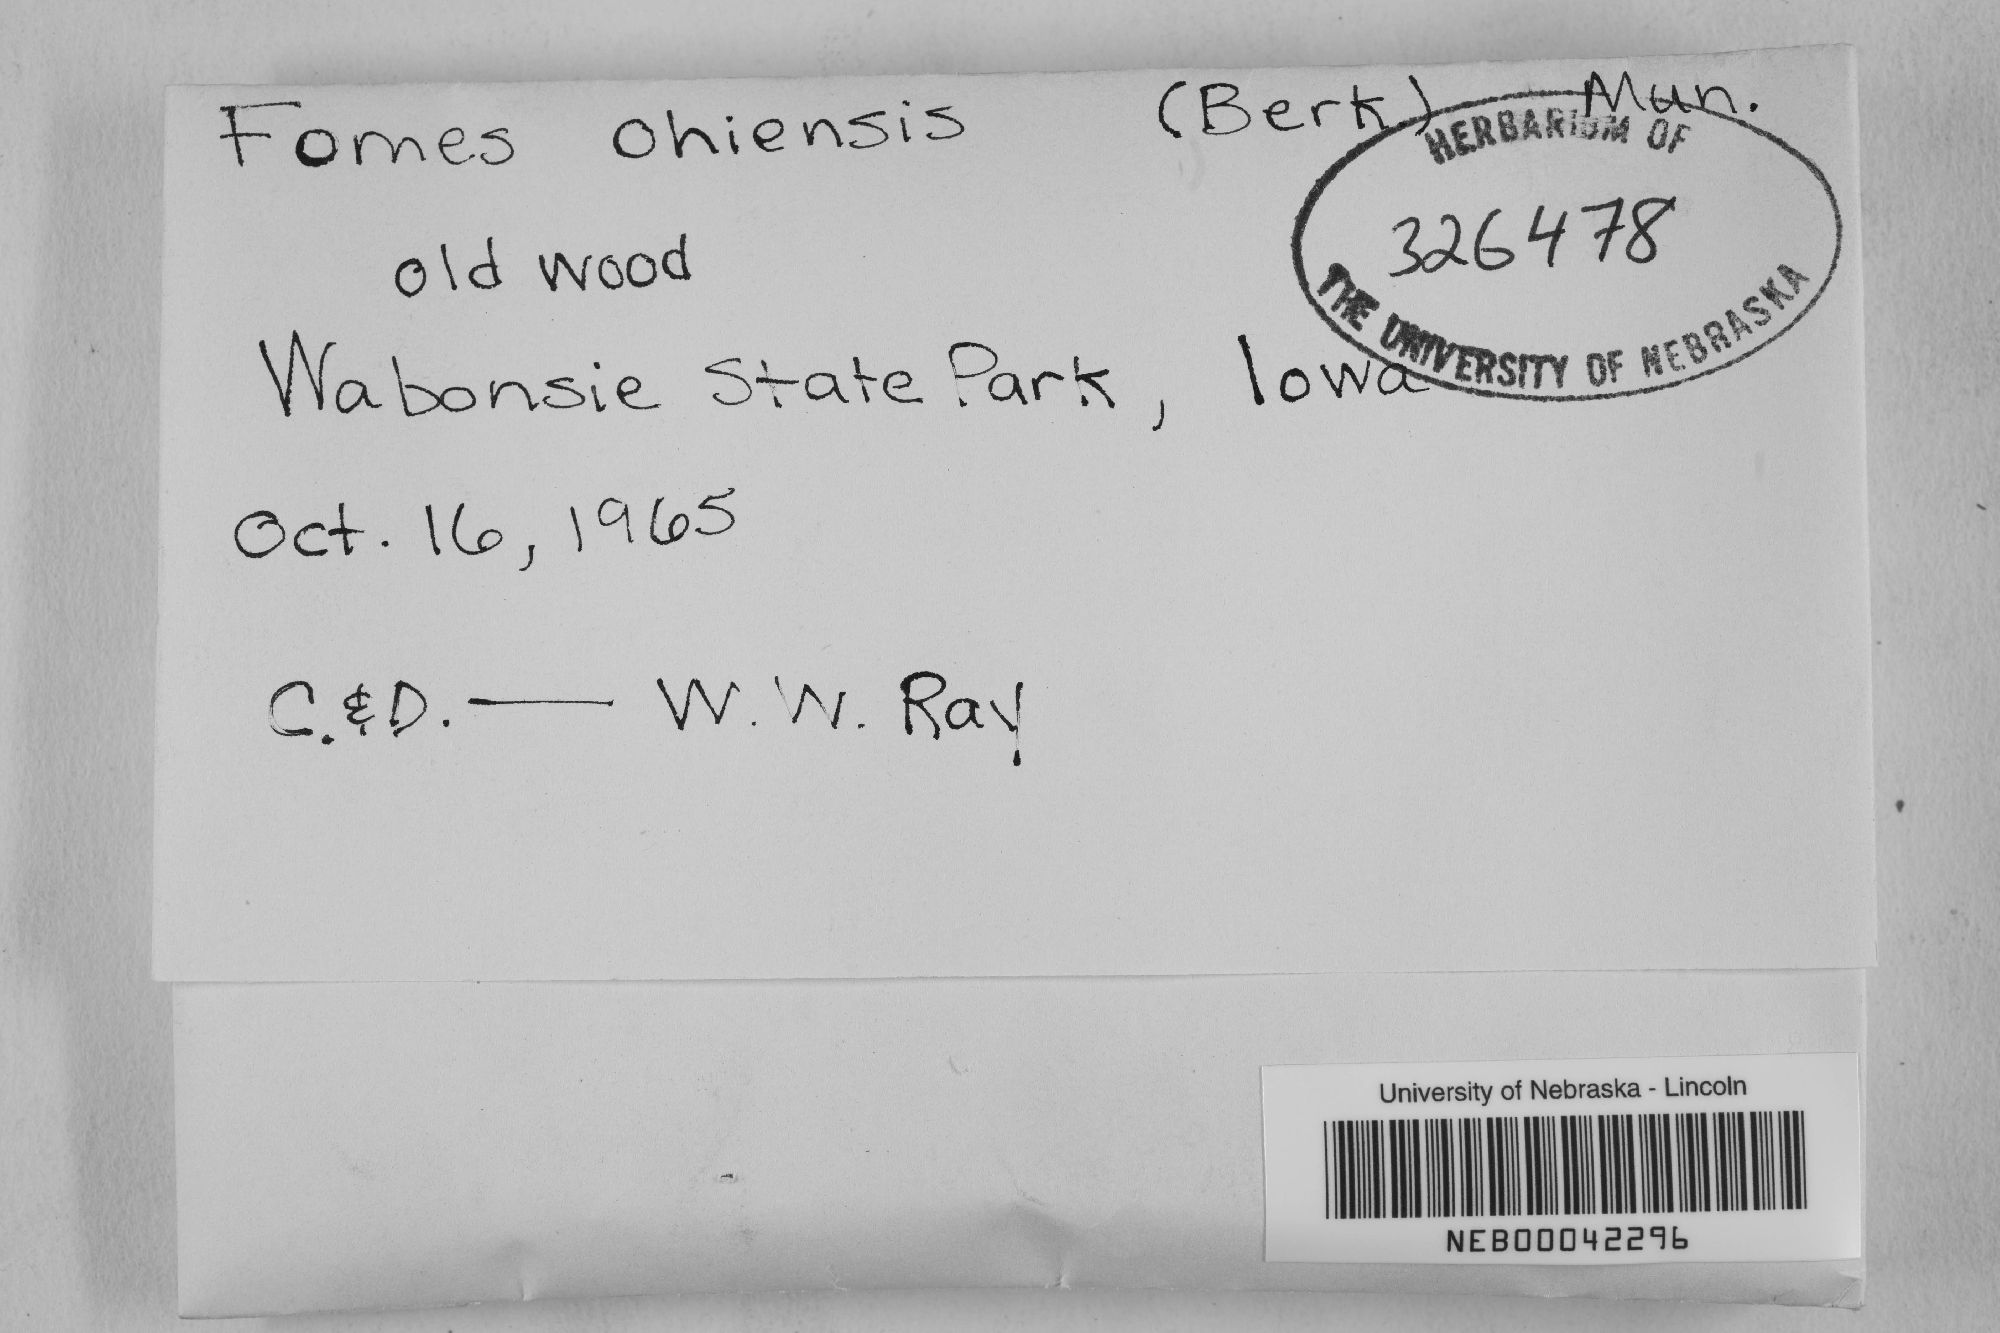 Fomes ohiensis (Berk) Mun.
HERBARIUM OF
326478
THE UNIVERSITY OF NEBRASKA
old wood
Wabonsie State Park, Iowa
Oct. 16, 1965
C.&D. — W. W. Ray
University of Nebraska - Lincoln
NEB00042296